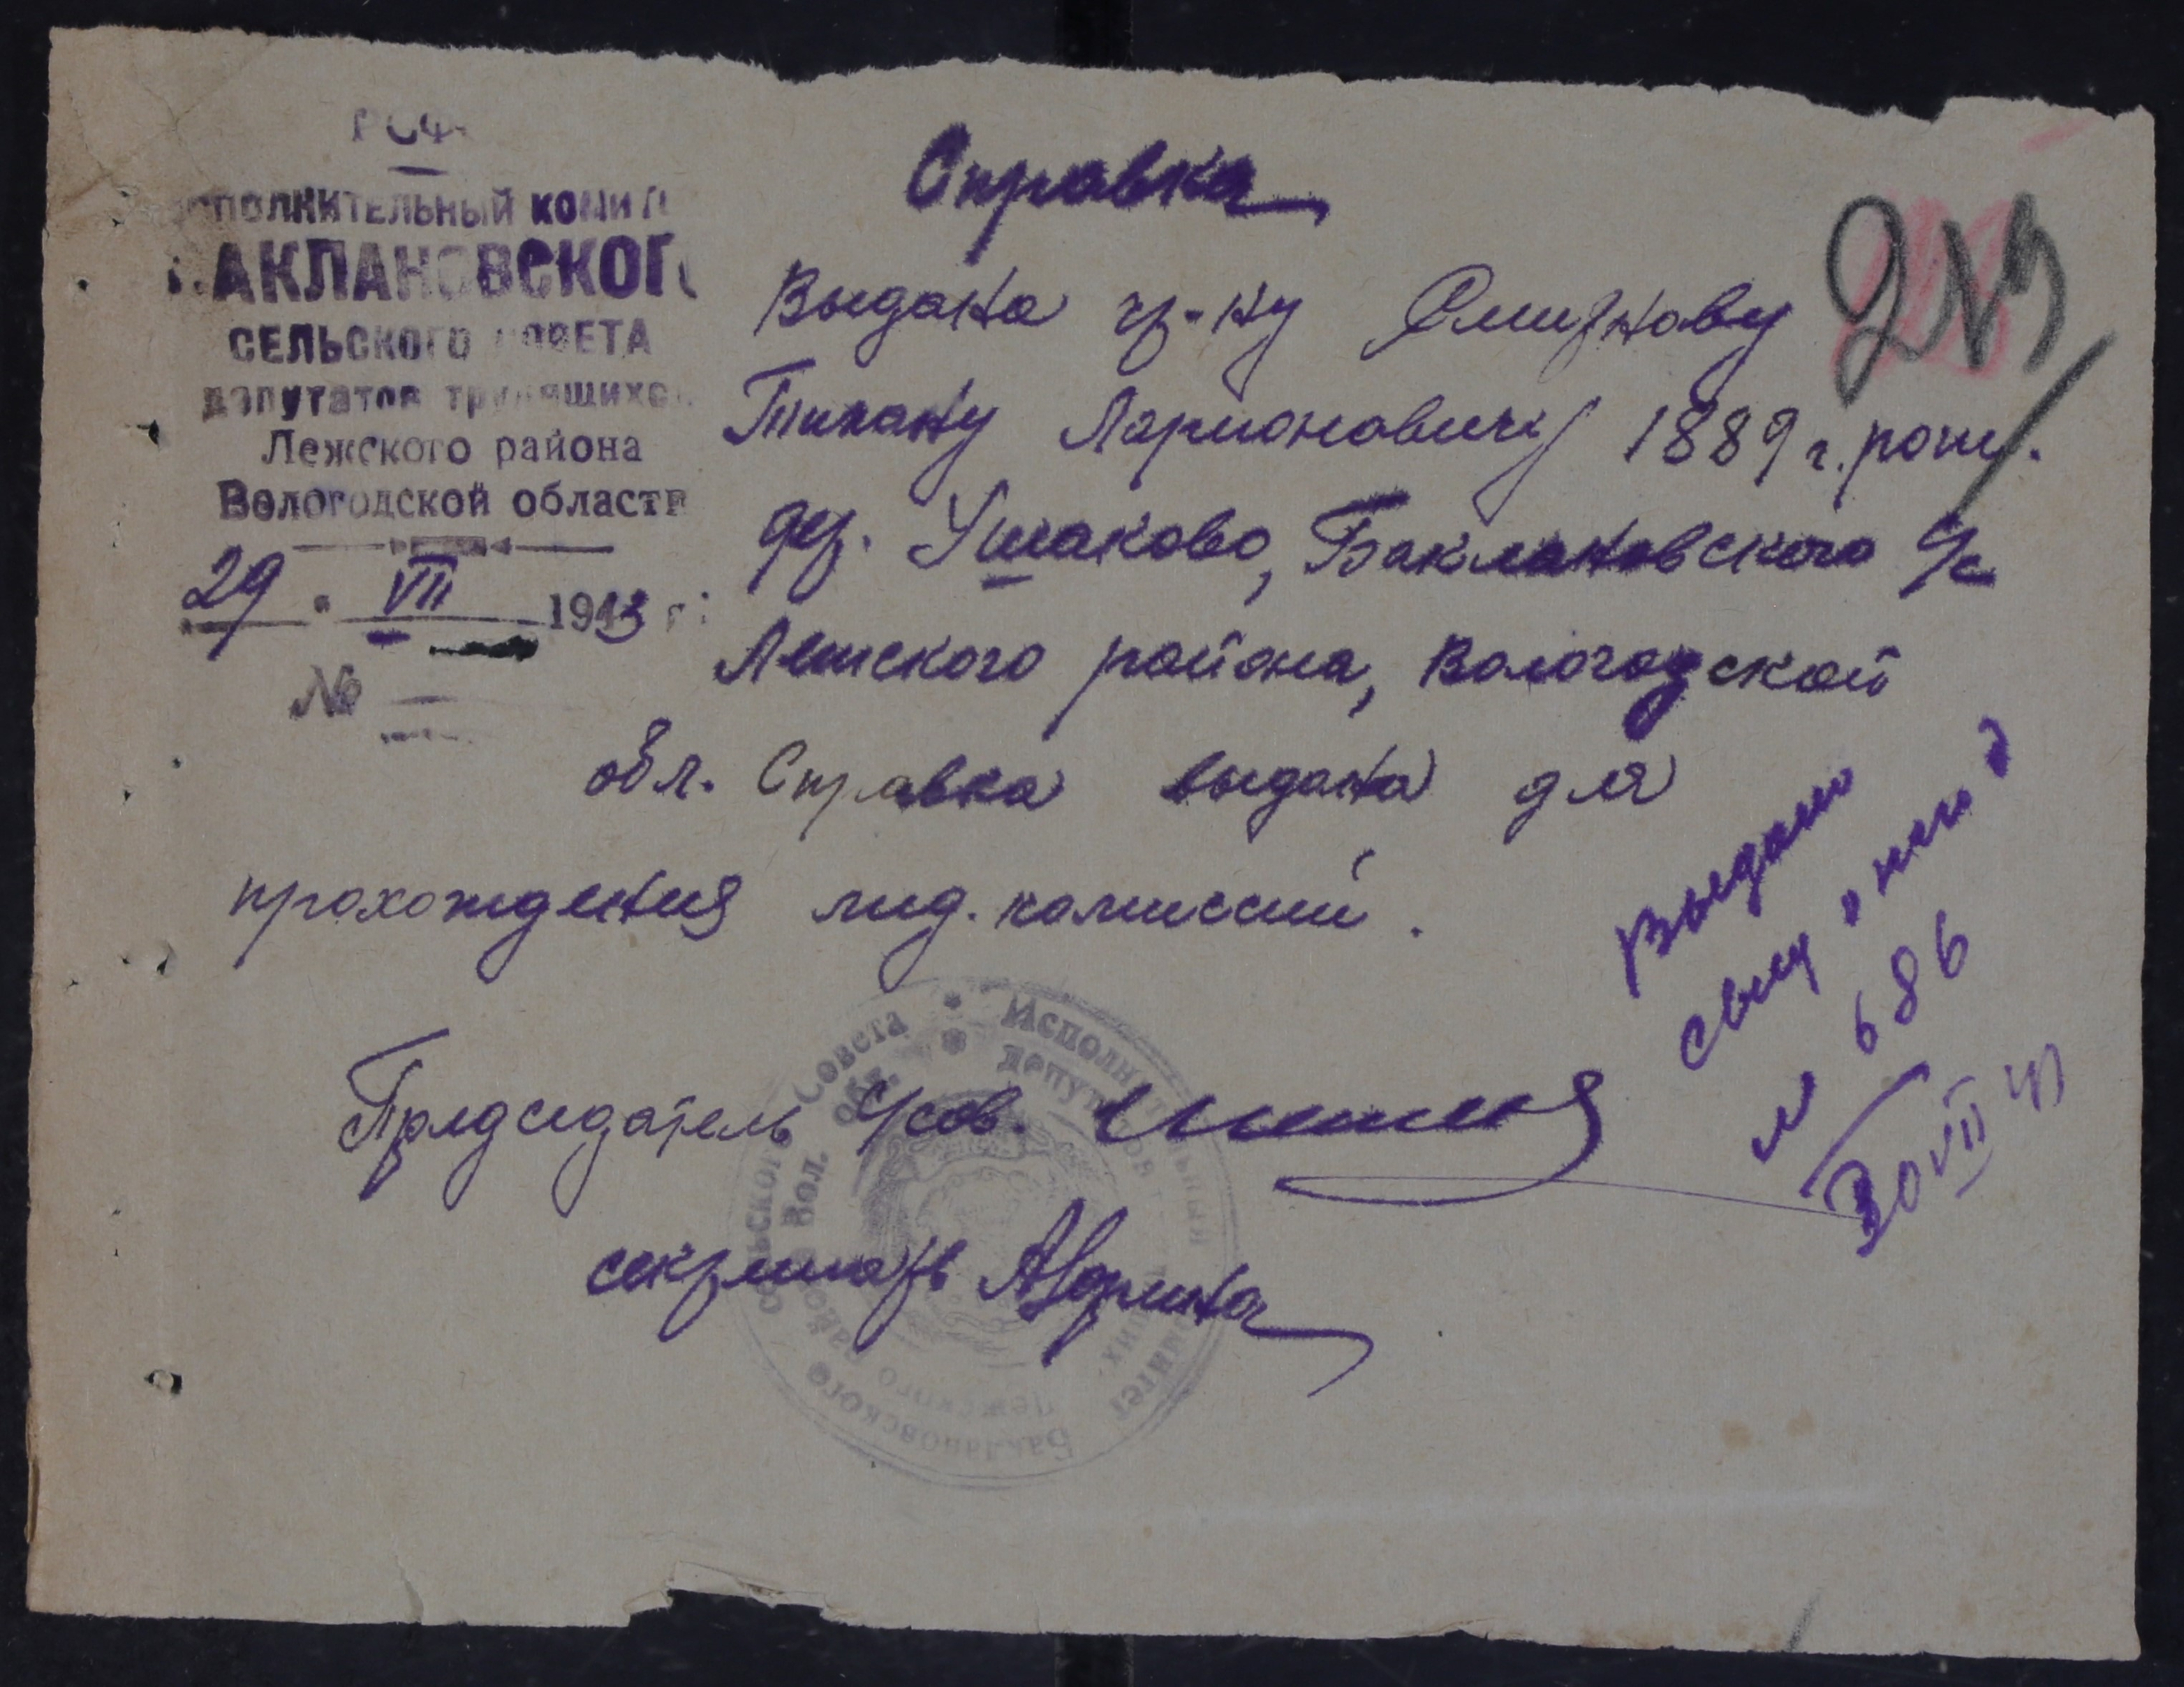 РСФ
ИСПОЛНИТЕЛЬНЫЙ КОМИТ
БАКЛАНОВСКОГО
СЕЛЬСКОГО СОВЕТА
депутатов трудящихся
Лежского района
Вологодской области
29 " VII 1943 г.
№
Справка
Выдана гр-ну Смирнову
Тихону Ларионовичу 1889 г. рожд.
дер. Ушаково, Баклановского с/с
Лежского района, Вологодской
обл. Справка выдана для
прохождения мед. комиссий.
Председатель с/сов.
секретарь
Выдано
№ 686
30 VII 43
Исполнительный комитет Баклановского сельского Совета
депутатов трудящихся Лежского района Вол. обл.